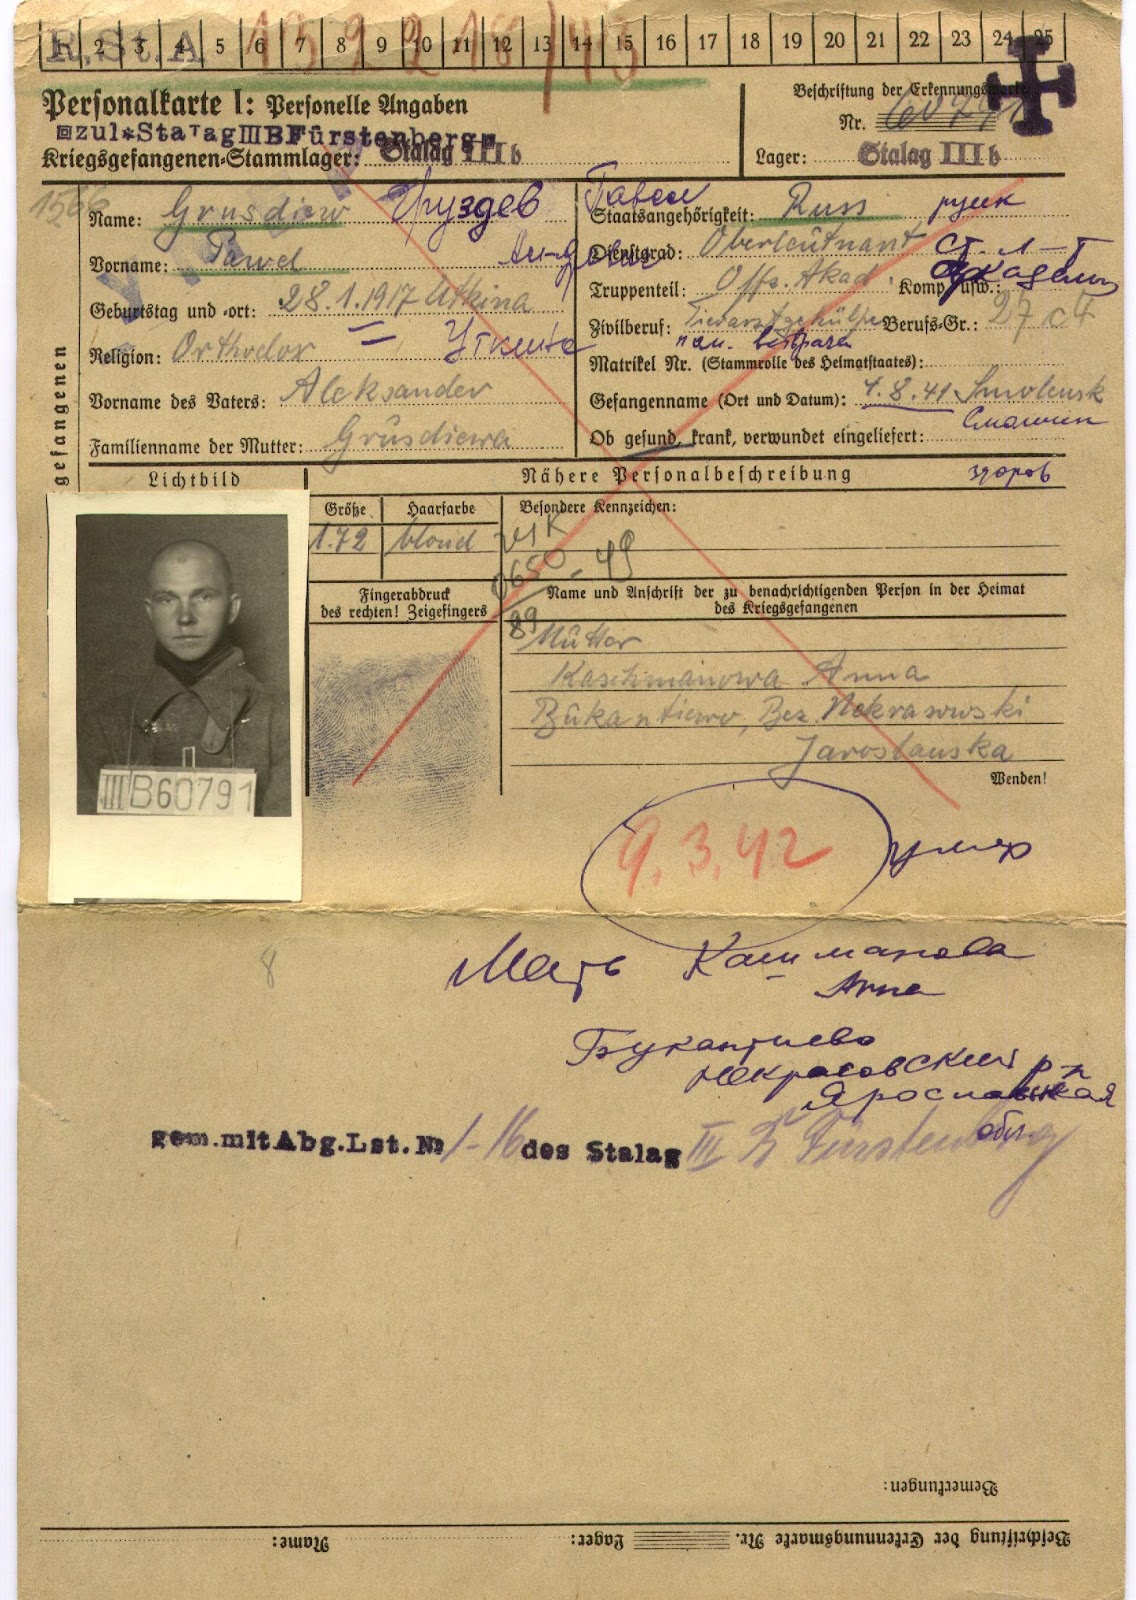 R.St.A 2 3 4 5 6 7 8 9 10 11 12 13 14 15 16 17 18 19 20 21 22 23 24 25
Personalkarte I: Personelle Angaben
zul*StaTagIIIB Fürstenberg
Kriegsgefangenen-Stammlager: Stalag III b
Beschriftung der Erkennungsmarke
Nr. 60791
Lager: Stalag III b
1566
Name: Grusdiew Груздев Павел
Vorname: Pawel
Geburtstag und -ort: 28.1.1917 Utkina
Religion: Orthodox Уткино
Vorname des Vaters: Aleksander
Familienname der Mutter: Grüsdiewa
Staatsangehörigkeit: Russ русск
Dienstgrad: Oberleutnant Ст. Л-т
Truppenteil: Offs. Akad Komp. usw.:
Zivilberuf: Tierarztgehülfe Berufs-Gr.: 27
пом. ветврача
Matrikel Nr. (Stammrolle des Heimatstaates):
Gefangenname (Ort und Datum): 4.8.41 Smolensk
Смоленск
Ob gesund, krank, verwundet eingeliefert:
здоров
gefangenen
Lichtbild
Nähere Personalbeschreibung
Größe Haarfarbe Besondere Kennzeichen:
1.72 blond
Fingerabdruck
des rechten! Zeigefingers
Name und Anschrift der zu benachrichtigenden Person in der Heimat
des Kriegsgefangenen
Mütter
Kaschmanowa Anna
Bükantiewo, Bez. Nekrasowski
Jaroslauska
Wenden!
IIIB60791
9.3.42 умер
8
Мать Кашманова
Анна
Букантиево
Некрасовский р-н
Ярославская
обл.
gem.mit Abg.Lst.№ 1-16 des Stalag III B Fürstenberg
Bemerkungen:
Beschriftung der Erkennungsmarke Nr. Lager: Name: